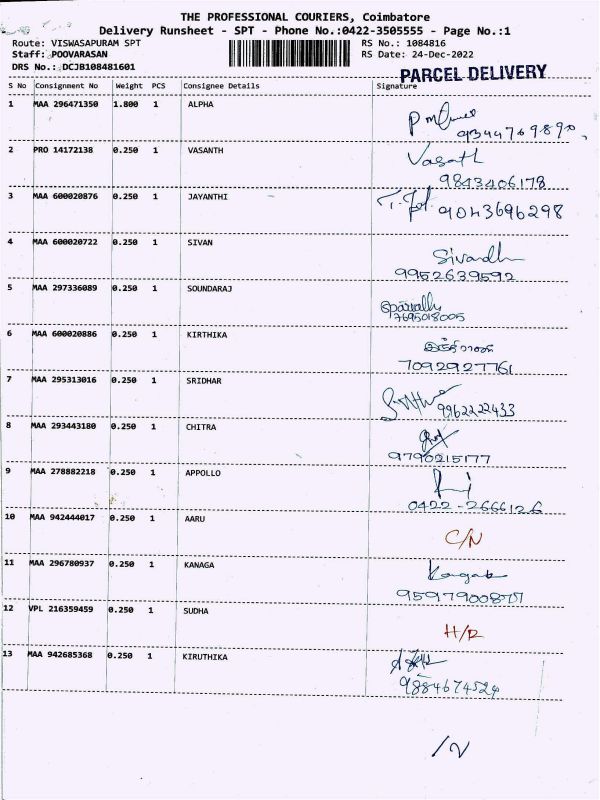 THE PROFESSIONAL COURIERS, Coimbatore
Delivery Runsheet - SPT - Phone No.:0422-3505555 - Page No.:1
Route: VISWASAPURAM SPT RS No.: 1084816
Staff: POOVARASAN RS Date: 24-Dec-2022
DRS No.: DCJB108481601 PARCEL DELIVERY
S No Consignment No Weight PCS Consignee Details Signature
1 MAA 296471350 1.800 1 ALPHA
9344769890
2 PRO 14172138 0.250 1 VASANTH Vasath
9843406178
3 MAA 600020876 0.250 1 JAYANTHI 9043696298
4 MAA 600020722 0.250 1 SIVAN Sivandh
9952639592
5 MAA 297336089 0.250 1 SOUNDARAJ
7695018005
6 MAA 600020886 0.250 1 KIRTHIKA
7092927761
7 MAA 295313016 0.250 1 SRIDHAR 9962222433
8 MAA 293443180 0.250 1 CHITRA
9790215177
9 MAA 278882218 0.250 1 APPOLLO
0422-2666126
10 MAA 942444017 0.250 1 AARU C/N
11 MAA 296780937 0.250 1 KANAGA
9597900877
12 VPL 216359459 0.250 1 SUDHA H/R
13 MAA 942685368 0.250 1 KIRUTHIKA
9884674524